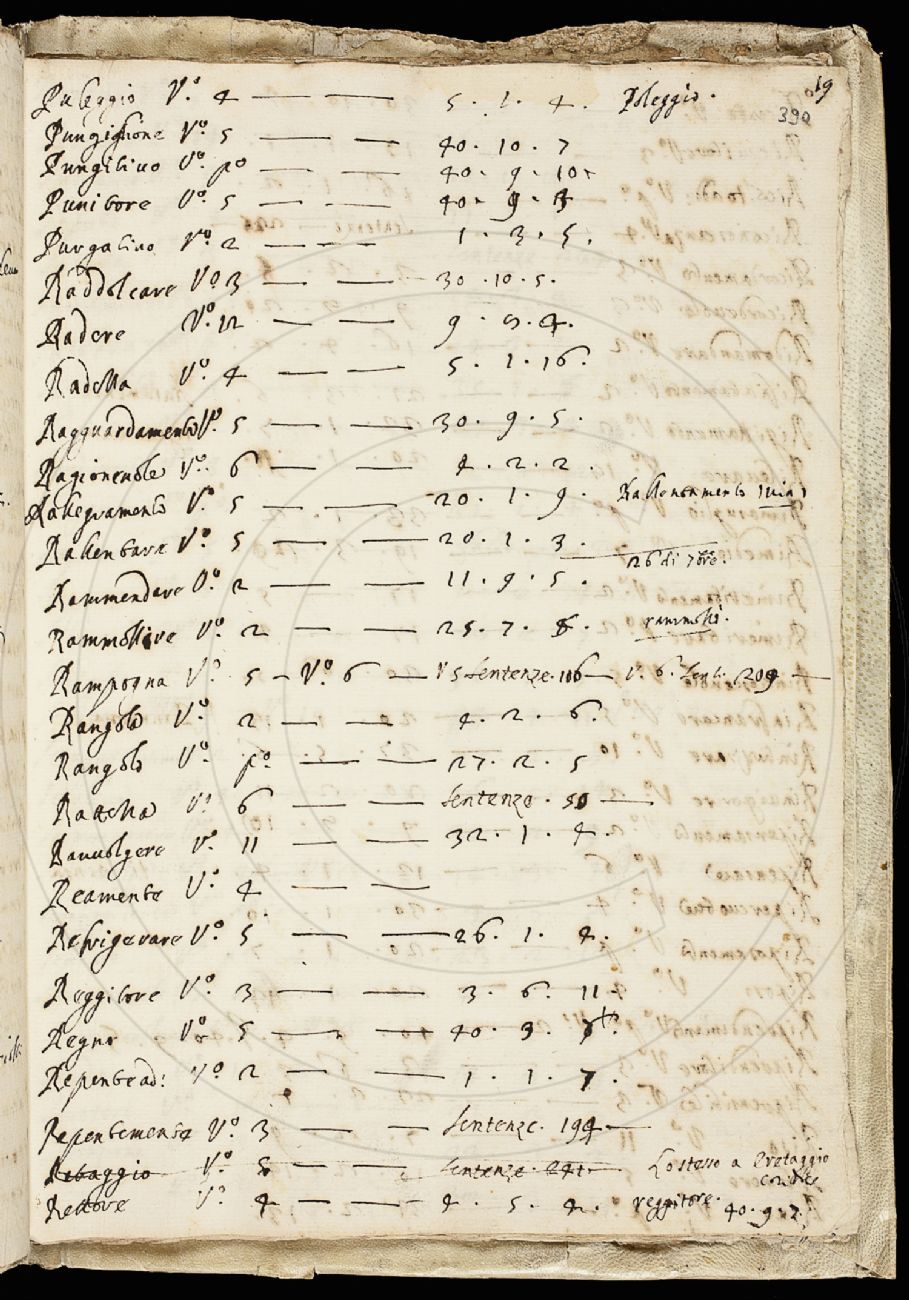 19
390
Puleggio V.o 4 — — 5. 1. 4. Poleggio.
Pungiglione V.o 5 — — 40. 10. 7
Pungitivo V.o po — — 40. 9. 10
Punitore V.o 5 — — 40. 9.
Purgativo V.o 2 — — 1. 3. 5.
Raddolcare V.o 3 — — 30. 10. 5.
Radere V.o 12 — — 9. 9. 4.
Radetta V.o 4 — — 5. 1. 16.
Ragguardamento V.o 5 — — 30. 9. 5.
Ragionevole V.o 6 — — 4. 2. 2.
Rallegramento V.o 5 — — 20. 1. 9. Rallentamento
Rallentare V.o 5 — — 20. 1. 3.
26 di 7bre.
Rammendare V.o 2 — — 11. 9. 5.
Rammollire V.o 2 — — 25. 7. 8. rammolli.
Rampogna V.o 5 — V.o 6 — V 5 Sentenze. 106 — V. 6. Sent. 209 —
Rangolo V.o 2 — — 4. 2. 6.
Rangolo V.o po — — 27. 2. 5
V.o 6 — — Sentenze. 50 —
Ravvolgere V.o 11 — — 32. 1. 4.
Reamente V.o 4 — —
Refrigerare V.o 5 — — 26. 1. 4.
Reggitore V.o 3 — — 3. 6. 11.
Regno V.o 5 — — 40. 3.
Repente ad: V.o 2 — — 1. 1. 7.
Repentemente V.o 3 — — Sentenze. 194 —
Retaggio V.o 5 — — Sentenze. 241 — Lo stesso a Eretaggio
Rettore V.o 4 — — 4. 5. 4. reggitore. 40. 9. 2.